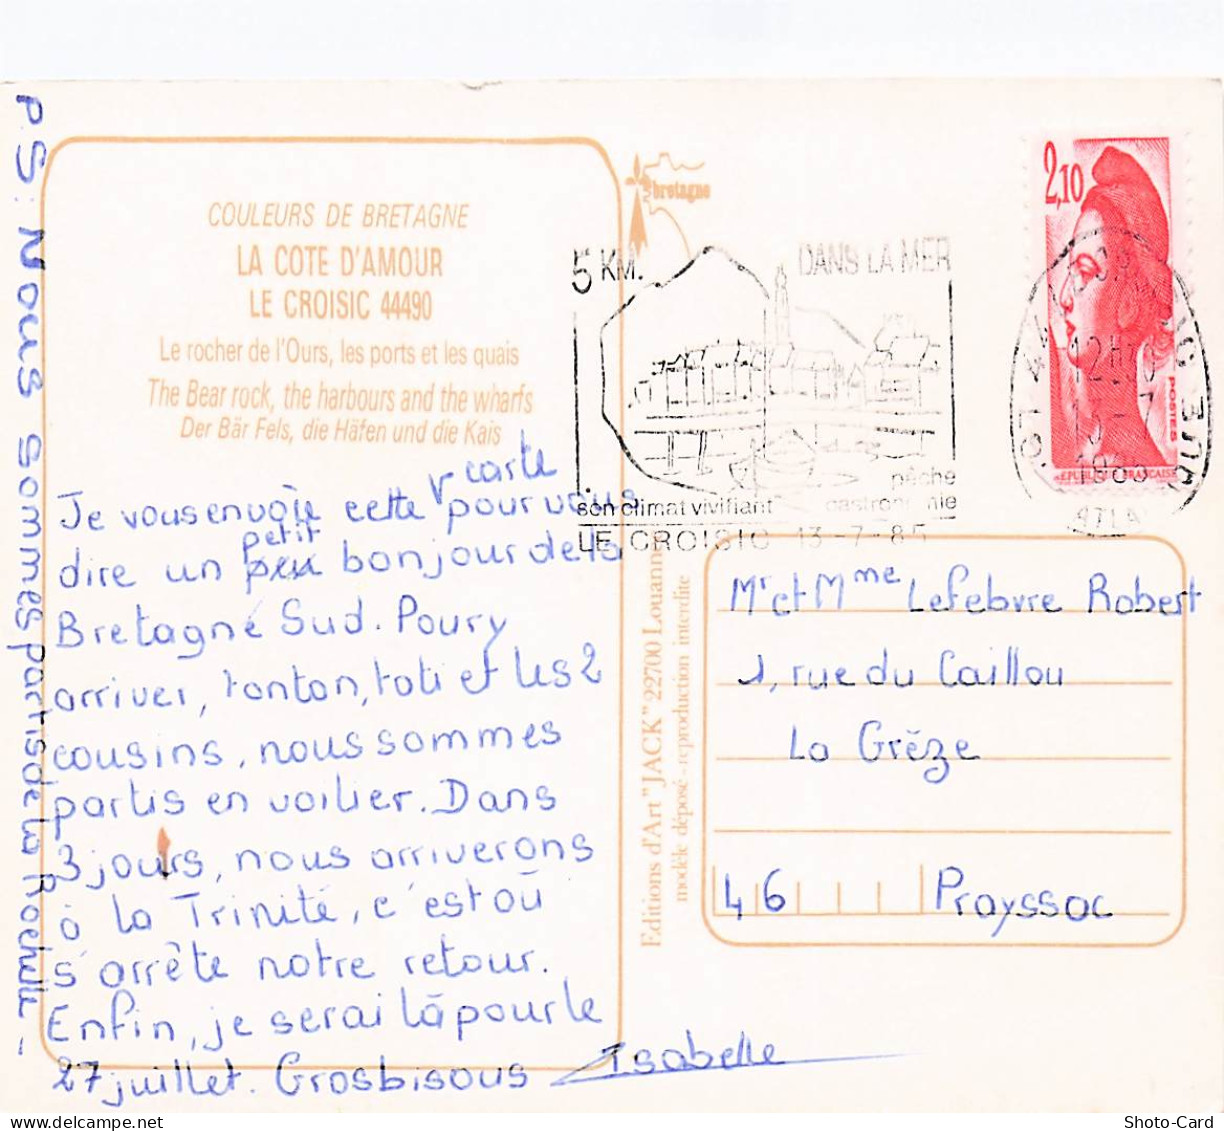 P.S: Nous sommes partis de la Rochelle -
COULEURS DE BRETAGNE
LA COTE D'AMOUR
LE CROISIC 44490
Le rocher de l'Ours, les ports et les quais
The Bear rock, the harbours and the wharfs
Der Bär Fels, die Häfen und die Kais
bretagne
5 KM. DANS LA MER
pêche
son climat vivifiant gastronomie
LE CROISIC 13-7-85
2,10
POSTES
REPUBLIQUE FRANCAISE
44
12H
13-7
1985
carte
Je vous envoie cette pour vous
petit
dire un peu bonjour de la
Bretagne Sud. Poury
arriver, tonton, tati et les 2
cousins, nous sommes
partis en voilier. Dans
3 jours, nous arriverons
à la Trinité, c'est où
s'arrête notre retour.
Enfin, je serai là pour le
27 juillet. Grosbisous Isabelle
Editions d'Art "JACK" 22700 Louannec
modèle déposé - reproduction interdite
Mr et Mme Lefebvre Robert
1, rue du Caillou
La Grèze
46 Prayssac
Shoto-Card